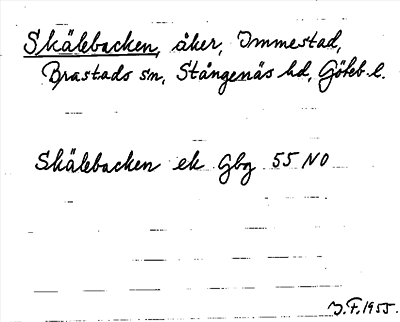 Skälebacken, åker, Immestad,
Brastads sn, Stångenäs hd, Göteb. l.
Skälebacken ek Gbg 55 NO
J.F. 1955.